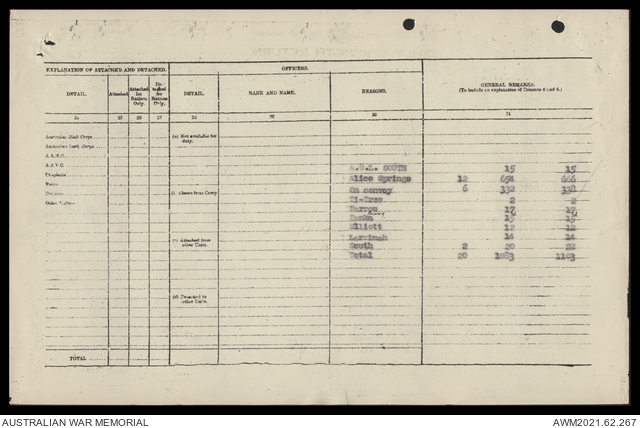 EXPLANATION OF ATTACHED AND DETACHED.
OFFICERS.
GENERAL REMARKS.
(To include an explanation of Columns 5 and 6.)
DETAIL. Attached Attached for Rations Only. De-tached for Rations Only. DETAIL. RANK AND NAME. REASONS.
24 25 26 27 28 29 30 31
Australian Staff Corps
(a) Not available for duty.
Australian Instl. Corps
A.A.M.C.
A.A.V.C. A.H.L. SOUTH 15 15
Chaplains Alice Springs 12 654 666
(b) Absent from Camp On convoy 6 332 338
Other Units— Ti-Tree 2 2
Barrow 17 17
Banka 15 15
Elliott 12 12
(c) Attached from other Units. Larrimah 14 14
South 2 20 22
Total 20 1083 1103
(d) Detached to other Units.
TOTAL
AUSTRALIAN WAR MEMORIAL
AWM2021.62.267